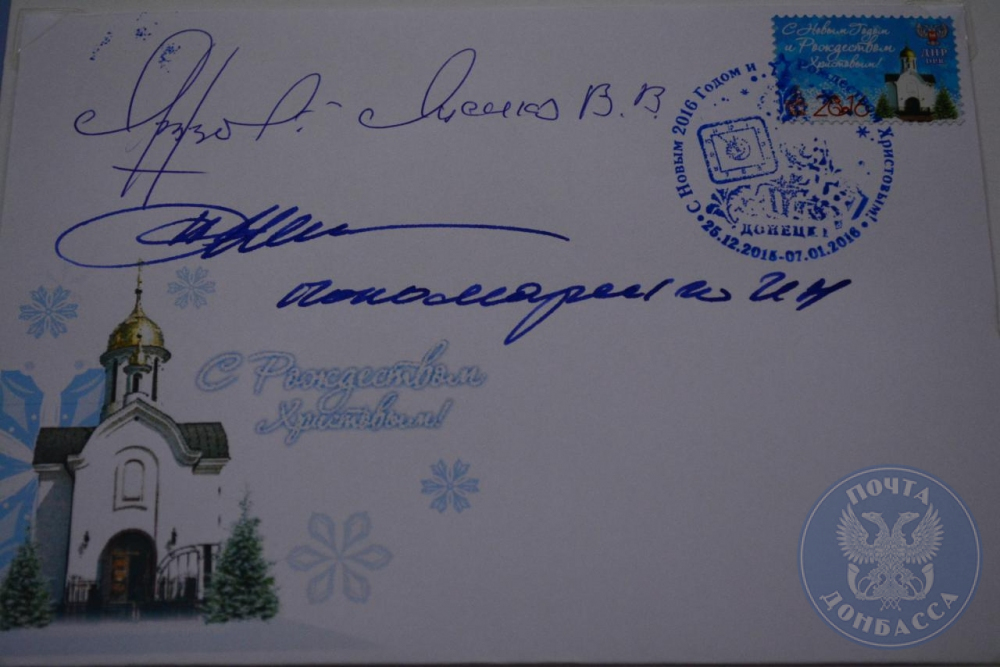 С Новым Годом
и Рождеством
Христовым!
ДНР
2016
С Новым 2016 Годом и Рождеством Христовым!
ДОНЕЦК
25.12.2015-07.01.2016
В. В.
Пономаренко И Н
С Рождеством
Христовым!
ПОЧТА
ДОНБАССА